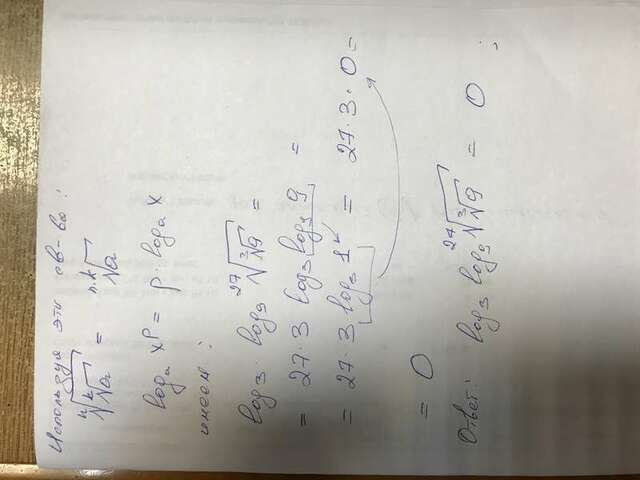 Используя эти св-ва:
ⁿ√(ᵏ√a) = ⁿ·ᵏ√a
logₐ xᵖ = p · logₐ x
имеем:
log₃ · log₉ ²⁷√(³√9) =
= 27·3 log₃ log₉ 9 =
= 27·3 log₃ 1 = 27·3·0 =
= 0
Ответ: log₃ log₉ ²⁷√(³√9) = 0 ;